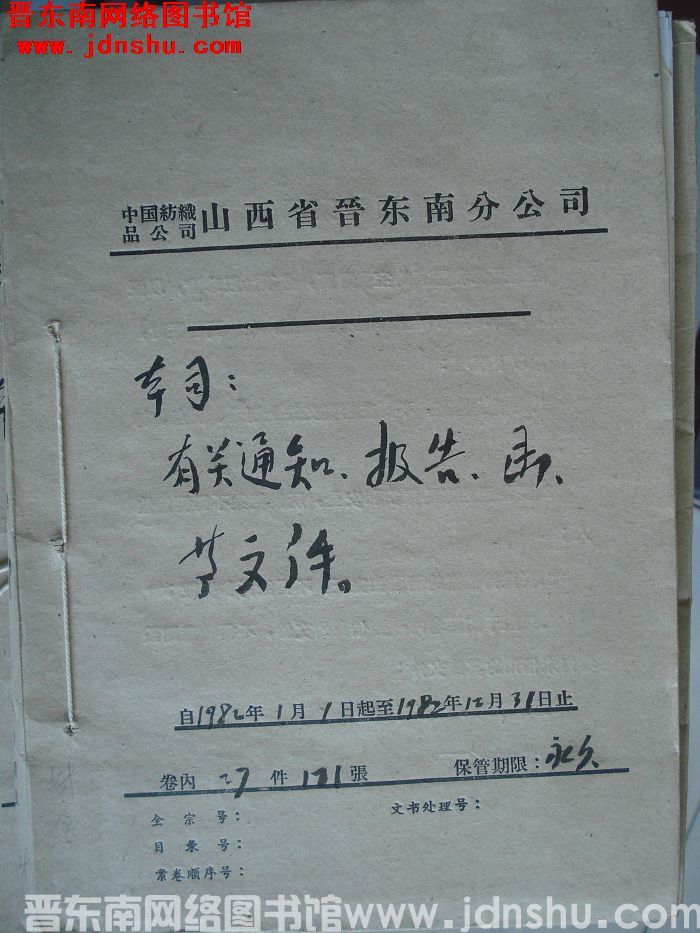 晋东南网络图书馆
www.jdnshu.com
中国紡織品公司 山西省晉东南分公司
本司：
有关通知、报告、函、
等文件。
自1982年1月1日起至1982年12月31日止
卷内 27 件 171 張 保管期限：永久
全宗号： 文书处理号：
目录号：
案卷顺序号：
晋东南网络图书馆www.jdnshu.com